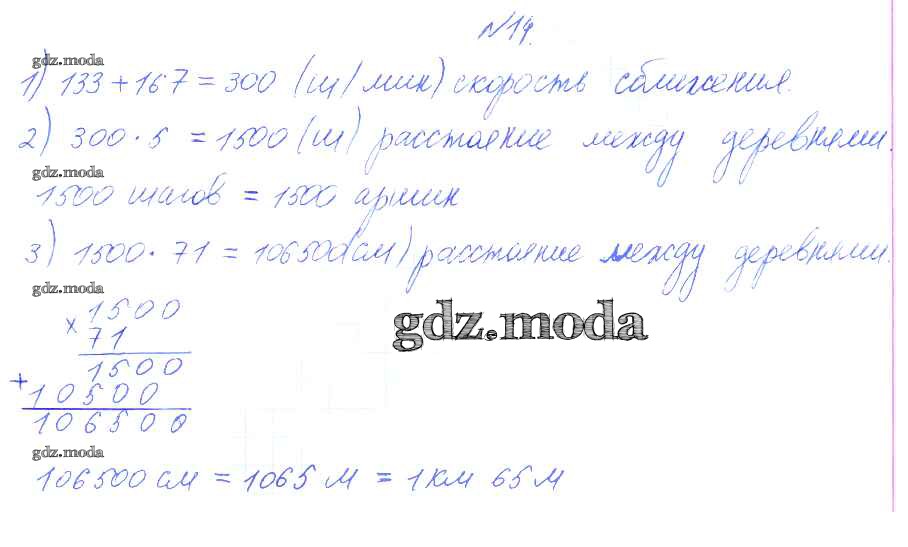 №19.
gdz.moda
1) 133 + 167 = 300 (ш/мин) скорость сближения.
2) 300 · 5 = 1500 (ш) расстояние между деревнями.
gdz.moda
1500 шагов = 1500 аршин
3) 1500 · 71 = 106500 (см) расстояние между деревнями.
gdz.moda
× 1500
71
gdz.moda
1500
+ 10500
106500
gdz.moda
106500 см = 1065 м = 1 км 65 м